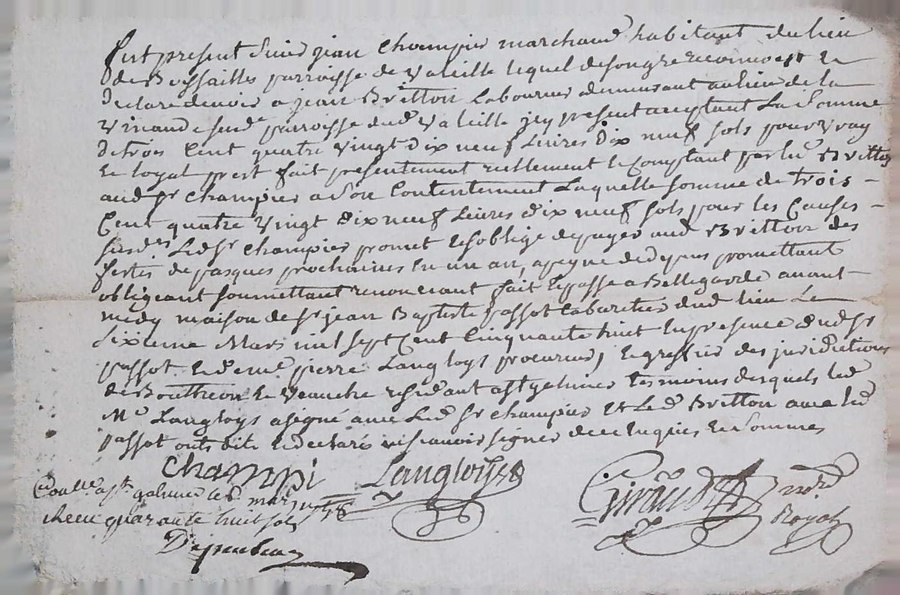 fut present Sieur jean Champier marchand habitant du lieu
de Bossailles parroisse de Valeille lequel de son gre reconnoest et
declare devoir a jean Britton Laboureur demeurant au lieu de la
Vinaude susde parroisse dud Valeille jcy present acceptant La Somme
de trois Cent quatre Vingt dix neuf Livres dix neuf sols pour vray
et loyal prest fait presentement reellement le Comptant par led Britton
aud sr Champier a son Contentement Laquelle somme de trois
Cent quatre Vingt dix neuf Livres dix neuf sols pour les Causes
susdes Led sr Champier promet et soblige de payer aud Britton des
festes de pasques prochaines En un an, a peyne de depens promettant
obligeant soumettant renonciant fait et passe a Bellegarde avant
midy maison de sr jean Baptiste passot Cabaretier dud lieu Le
Sixieme Mars mil sept Cent Cinquante huit En presence dud sr
passot et de me pierre Langloys procureur et greffier des juridictions
de Boutheon et Veauche residant a st galmier tesmoins desquels led
Me Langloys a signé avec Led sr Champier et Led Britton avec led
passot ont dit et declaré ne scavoir signer de ce enquis et Sommes
Champi
Langloys
Giraud
nore
Royal
Coollé a st galmier le 6 mars 1758
Receu quarante huit sols